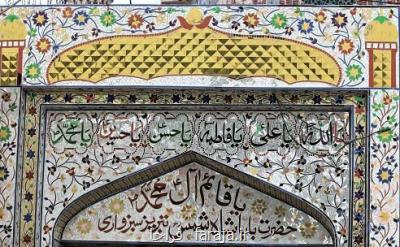 یا اللہ یا علیؑ یا فاطمہؑ یا حسنؑ یا حسینؑ یا محمدؐ
یا قائم آل محمدؐ
حضرت شاہ شمس تبریز سبزواری
faraja.ir